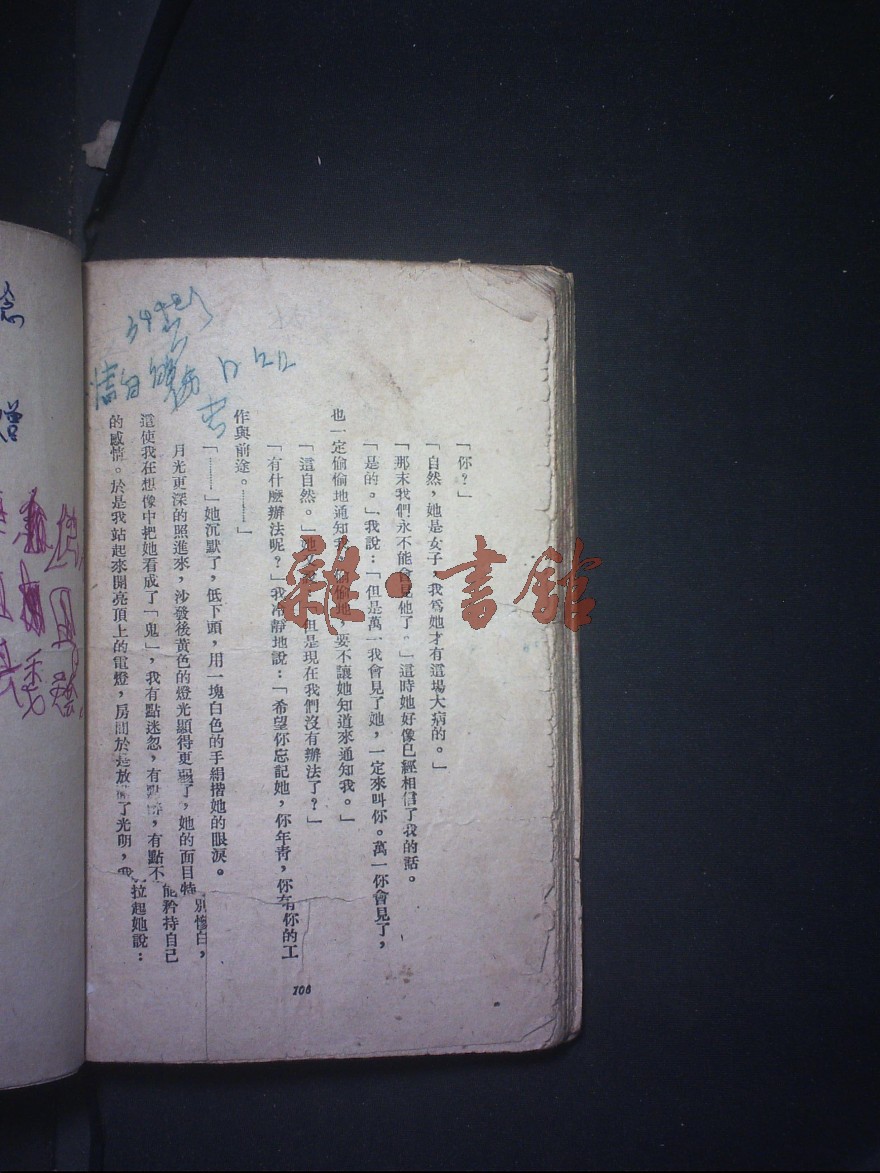 「你？」
「自然，她是女子，我爲她才有這場大病的。」
「那末我們永不能會見他了。」這時她好像已經相信了我的話。
「是的。」我說：「但是萬一我會見了她，一定來叫你。萬一你會見了，
也一定偷偷地通知我，偷偷地，要不讓她知道來通知我。」
「這自然。」她 但是現在我們沒有辦法了？」
「有什麼辦法呢？」我冷靜地說：「希望你忘記她，你年青，你有你的工
作與前途。………」
「………」她沉默了，低下頭，用一塊白色的手絹揩她的眼淚。
月光更深的照進來，沙發後黃色的燈光顯得更弱了，她的面目特別慘白，
這使我在想像中把她看成了「鬼」，我有點迷忽，有點 ，有點不能矜持自己
的感情。於是我站起來開亮頂上的電燈，房間於是放 了光明，我拉起她說：
108
雜·書館
念
贈